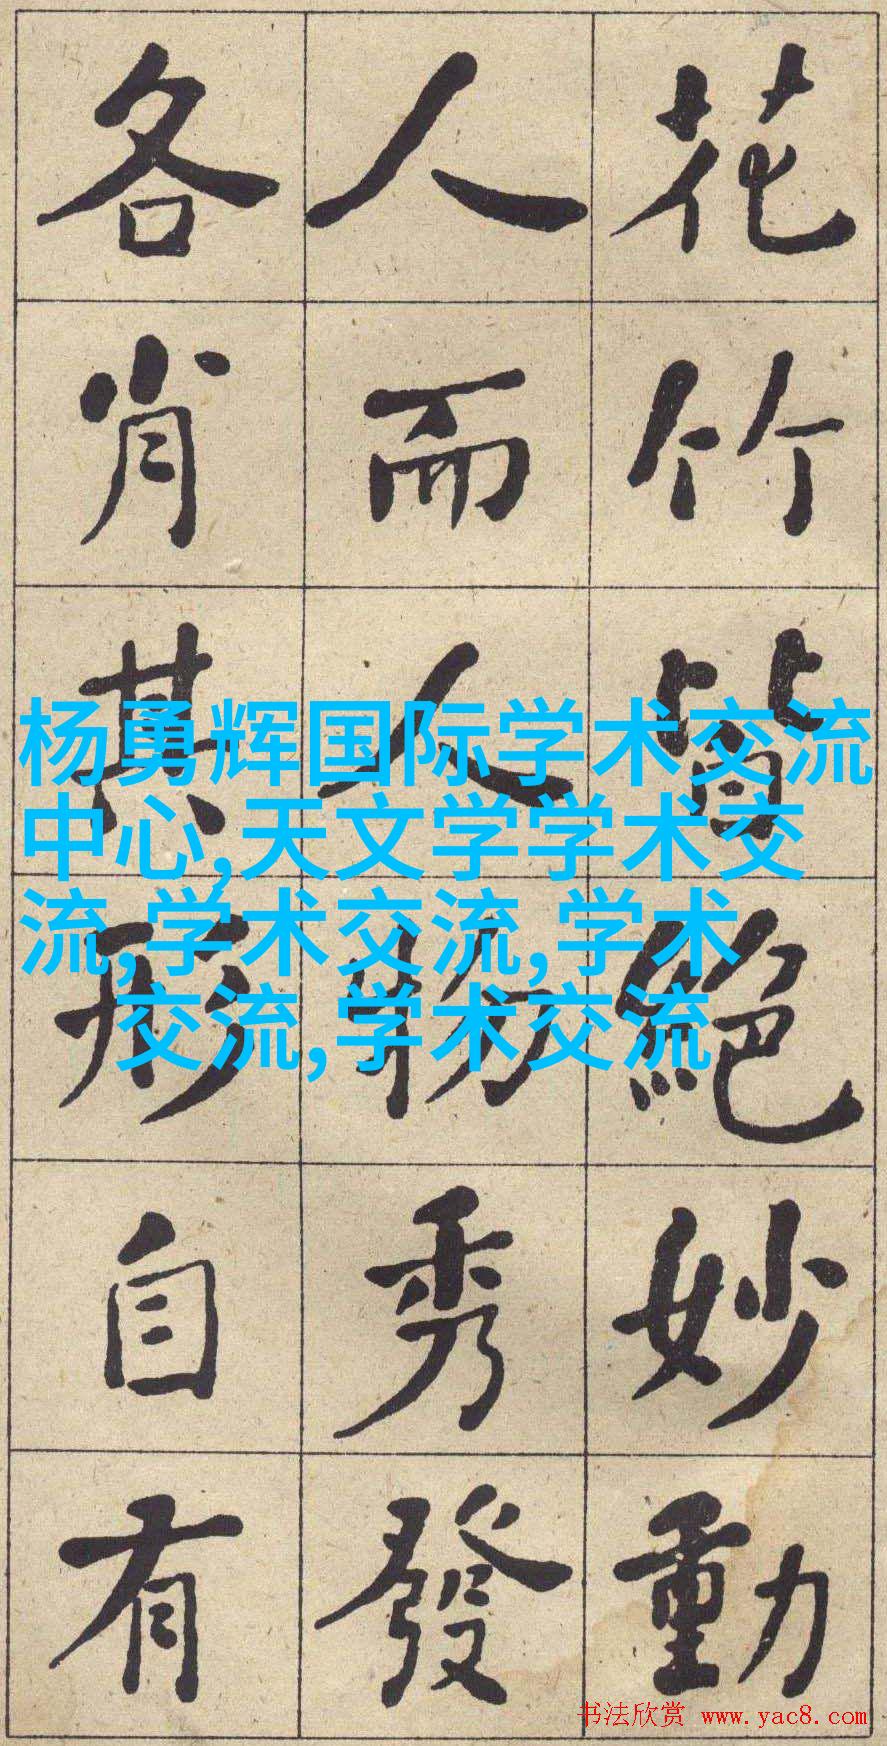 花竹皆絕妙動
人而人物秀發
各肖其形自有
杨勇辉国际学术交流
中心,天文学学术交
流,学术交流,学术
交流,学术交流
书法欣赏 www.yac8.com